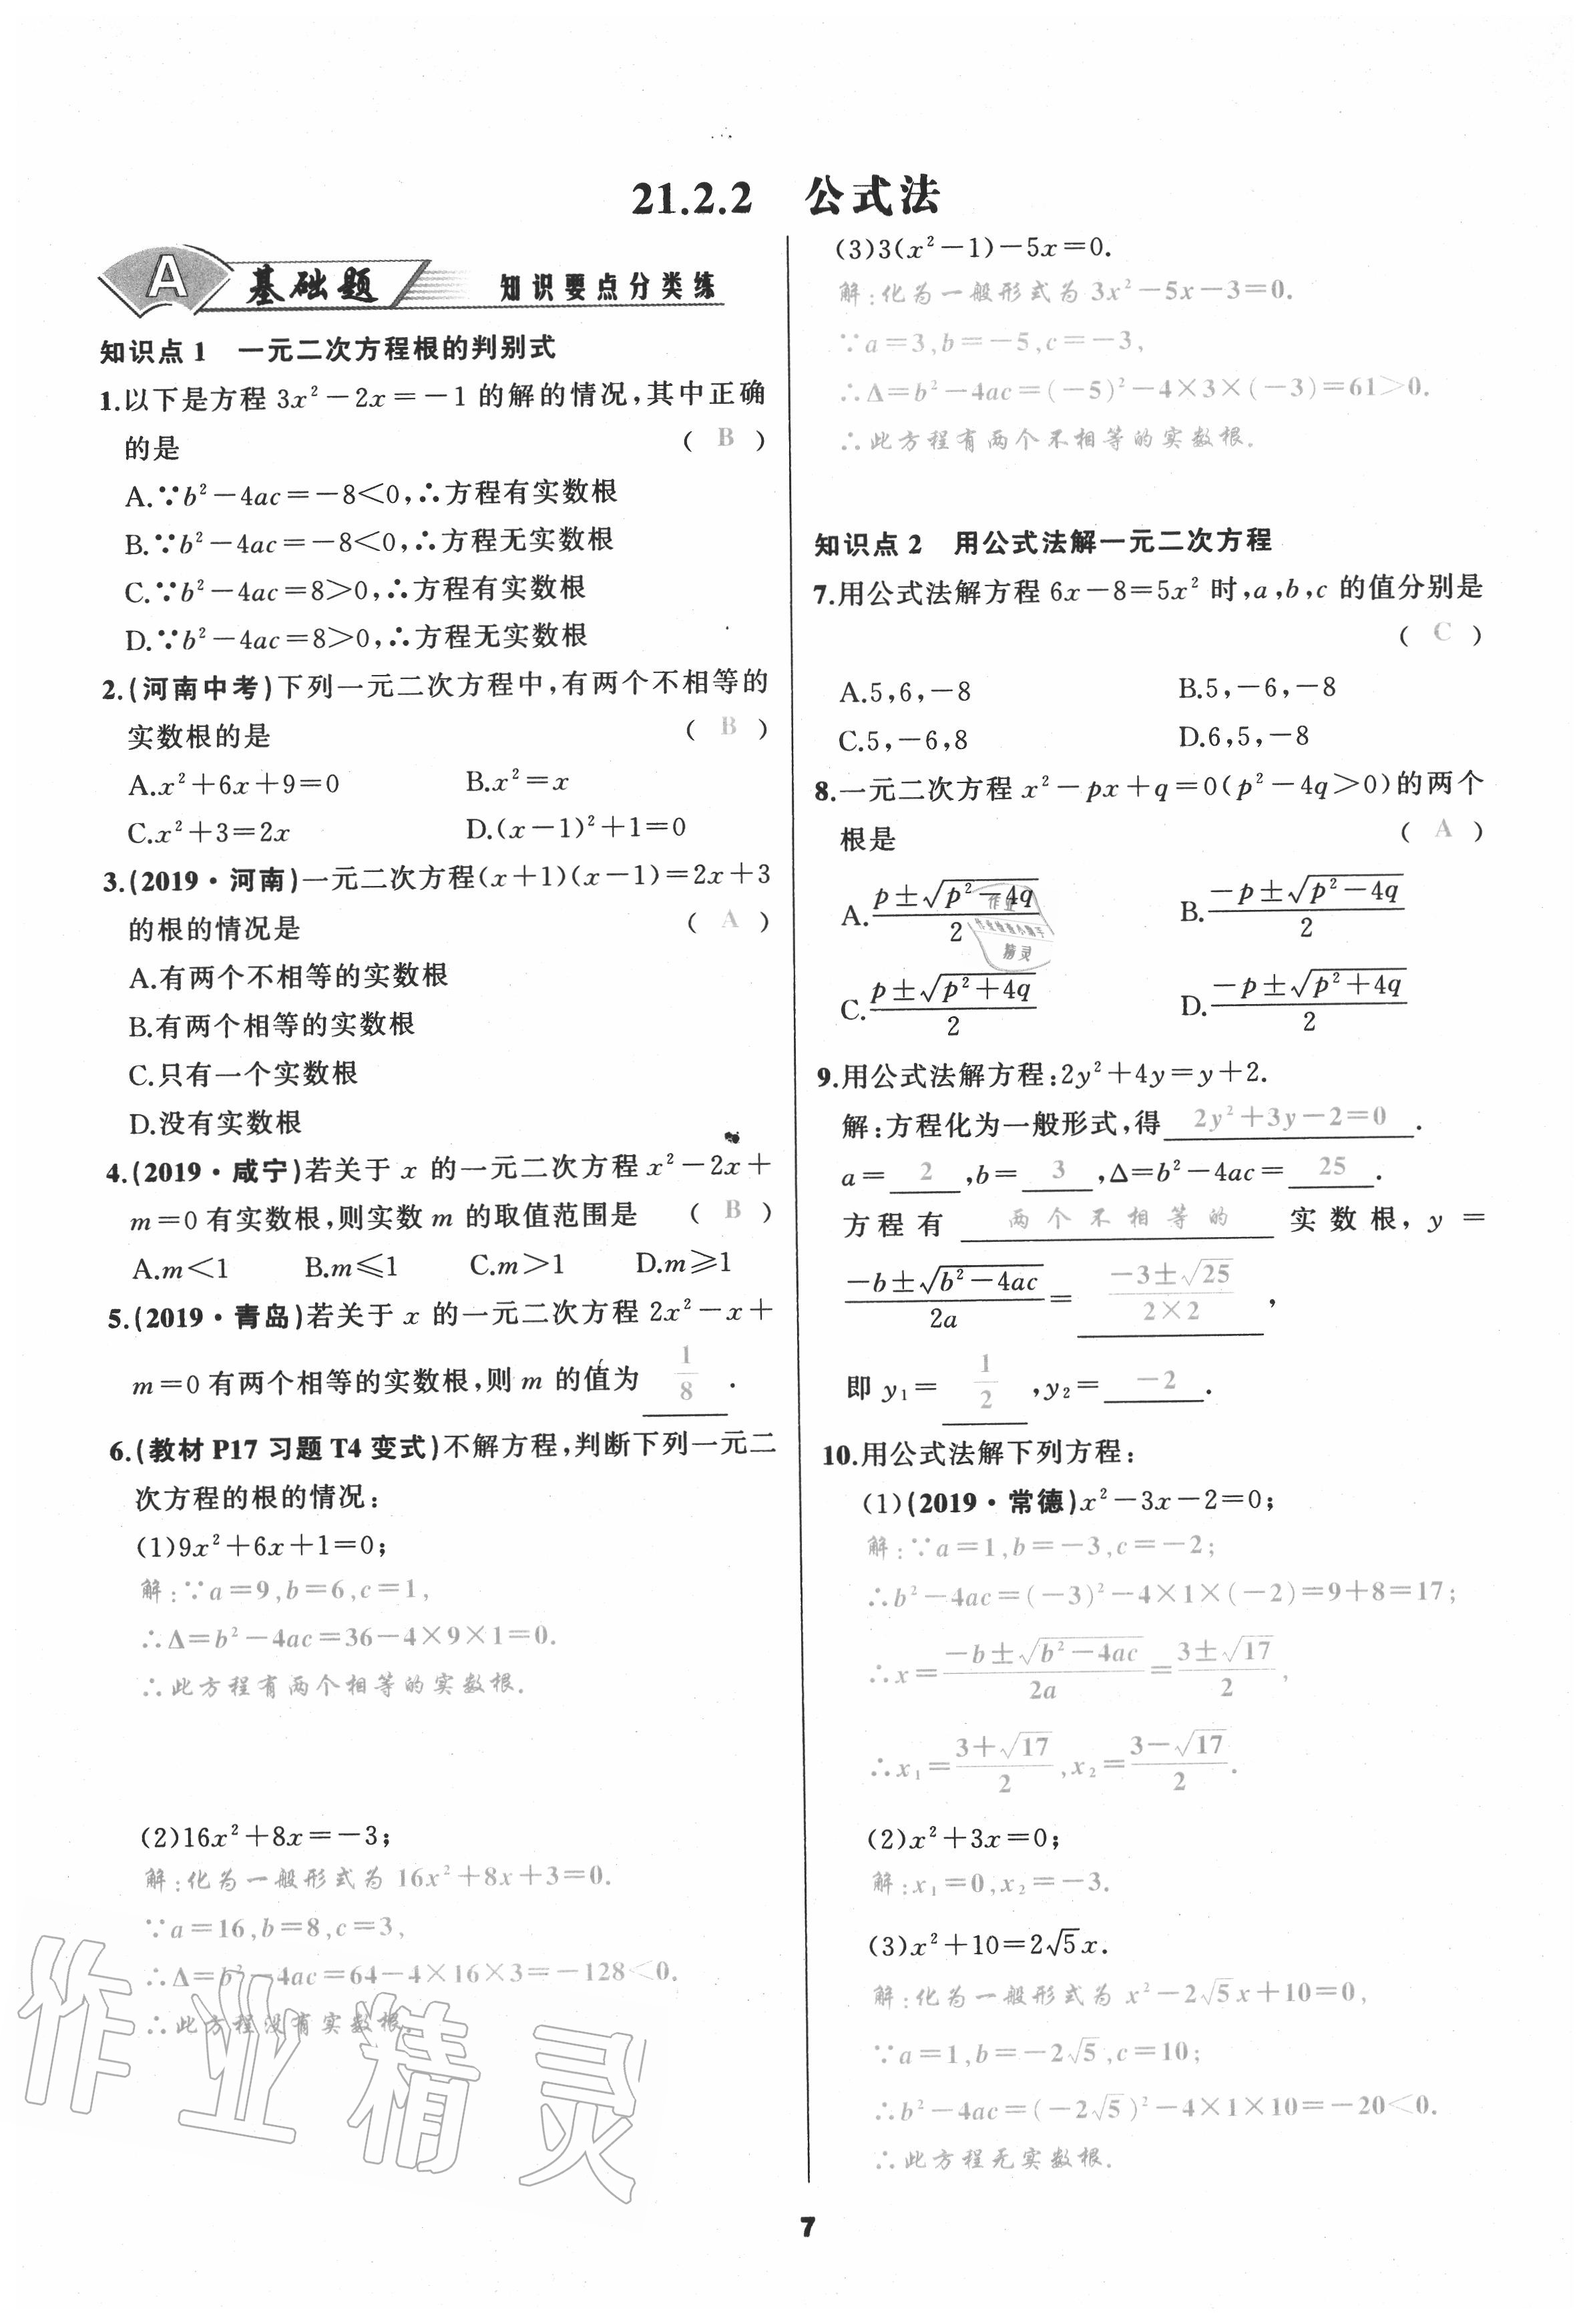 21.2.2 公式法
A 基础题 知识要点分类练
知识点 1 一元二次方程根的判别式
1.以下是方程 3x²－2x＝－1 的解的情况,其中正确
的是 ( B )
A.∵b²－4ac＝－8＜0,∴方程有实数根
B.∵b²－4ac＝－8＜0,∴方程无实数根
C.∵b²－4ac＝8＞0,∴方程有实数根
D.∵b²－4ac＝8＞0,∴方程无实数根
2.(河南中考)下列一元二次方程中,有两个不相等的
实数根的是 ( B )
A.x²＋6x＋9＝0 B.x²＝x
C.x²＋3＝2x D.(x－1)²＋1＝0
3.(2019·河南)一元二次方程(x＋1)(x－1)＝2x＋3
的根的情况是 ( A )
A.有两个不相等的实数根
B.有两个相等的实数根
C.只有一个实数根
D.没有实数根
4.(2019·咸宁)若关于 x 的一元二次方程 x²－2x＋
m＝0 有实数根,则实数 m 的取值范围是 ( B )
A.m＜1 B.m⩽1 C.m＞1 D.m⩾1
5.(2019·青岛)若关于 x 的一元二次方程 2x²－x＋
m＝0 有两个相等的实数根,则 m 的值为 1/8 .
6.(教材 P17 习题 T4 变式)不解方程,判断下列一元二
次方程的根的情况:
(1)9x²＋6x＋1＝0;
解:∵a＝9,b＝6,c＝1,
∴Δ＝b²－4ac＝36－4×9×1＝0.
∴此方程有两个相等的实数根.
(2)16x²＋8x＝－3;
解:化为一般形式为 16x²＋8x＋3＝0.
∵a＝16,b＝8,c＝3,
∴Δ＝b²－4ac＝64－4×16×3＝－128＜0.
∴此方程没有实数根.
(3)3(x²－1)－5x＝0.
解:化为一般形式为 3x²－5x－3＝0.
∵a＝3,b＝－5,c＝－3,
∴Δ＝b²－4ac＝(－5)²－4×3×(－3)＝61＞0.
∴此方程有两个不相等的实数根.
知识点 2 用公式法解一元二次方程
7.用公式法解方程 6x－8＝5x² 时,a,b,c 的值分别是
( C )
A.5,6,－8 B.5,－6,－8
C.5,－6,8 D.6,5,－8
8.一元二次方程 x²－px＋q＝0(p²－4q＞0)的两个
根是 ( A )
A.(p±√(p²－4q))/2 B.(－p±√(p²－4q))/2
C.(p±√(p²＋4q))/2 D.(－p±√(p²＋4q))/2
9.用公式法解方程:2y²＋4y＝y＋2.
解:方程化为一般形式,得 2y²＋3y－2＝0 .
a＝ 2 ,b＝ 3 ,Δ＝b²－4ac＝ 25 .
方程有 两个不相等的 实数根, y ＝
(－b±√(b²－4ac))/2a＝ (－3±√25)/(2×2) ,
即 y₁＝ 1/2 ,y₂＝ －2 .
10.用公式法解下列方程:
(1)(2019·常德)x²－3x－2＝0;
解:∵a＝1,b＝－3,c＝－2;
∴b²－4ac＝(－3)²－4×1×(－2)＝9＋8＝17;
∴x＝(－b±√(b²－4ac))/2a＝(3±√17)/2,
∴x₁＝(3＋√17)/2,x₂＝(3－√17)/2.
(2)x²＋3x＝0;
解:x₁＝0,x₂＝－3.
(3)x²＋10＝2√5x.
解:化为一般形式为 x²－2√5x＋10＝0,
∵a＝1,b＝－2√5,c＝10;
∴b²－4ac＝(－2√5)²－4×1×10＝－20＜0.
∴此方程无实数根.
作业精灵
7